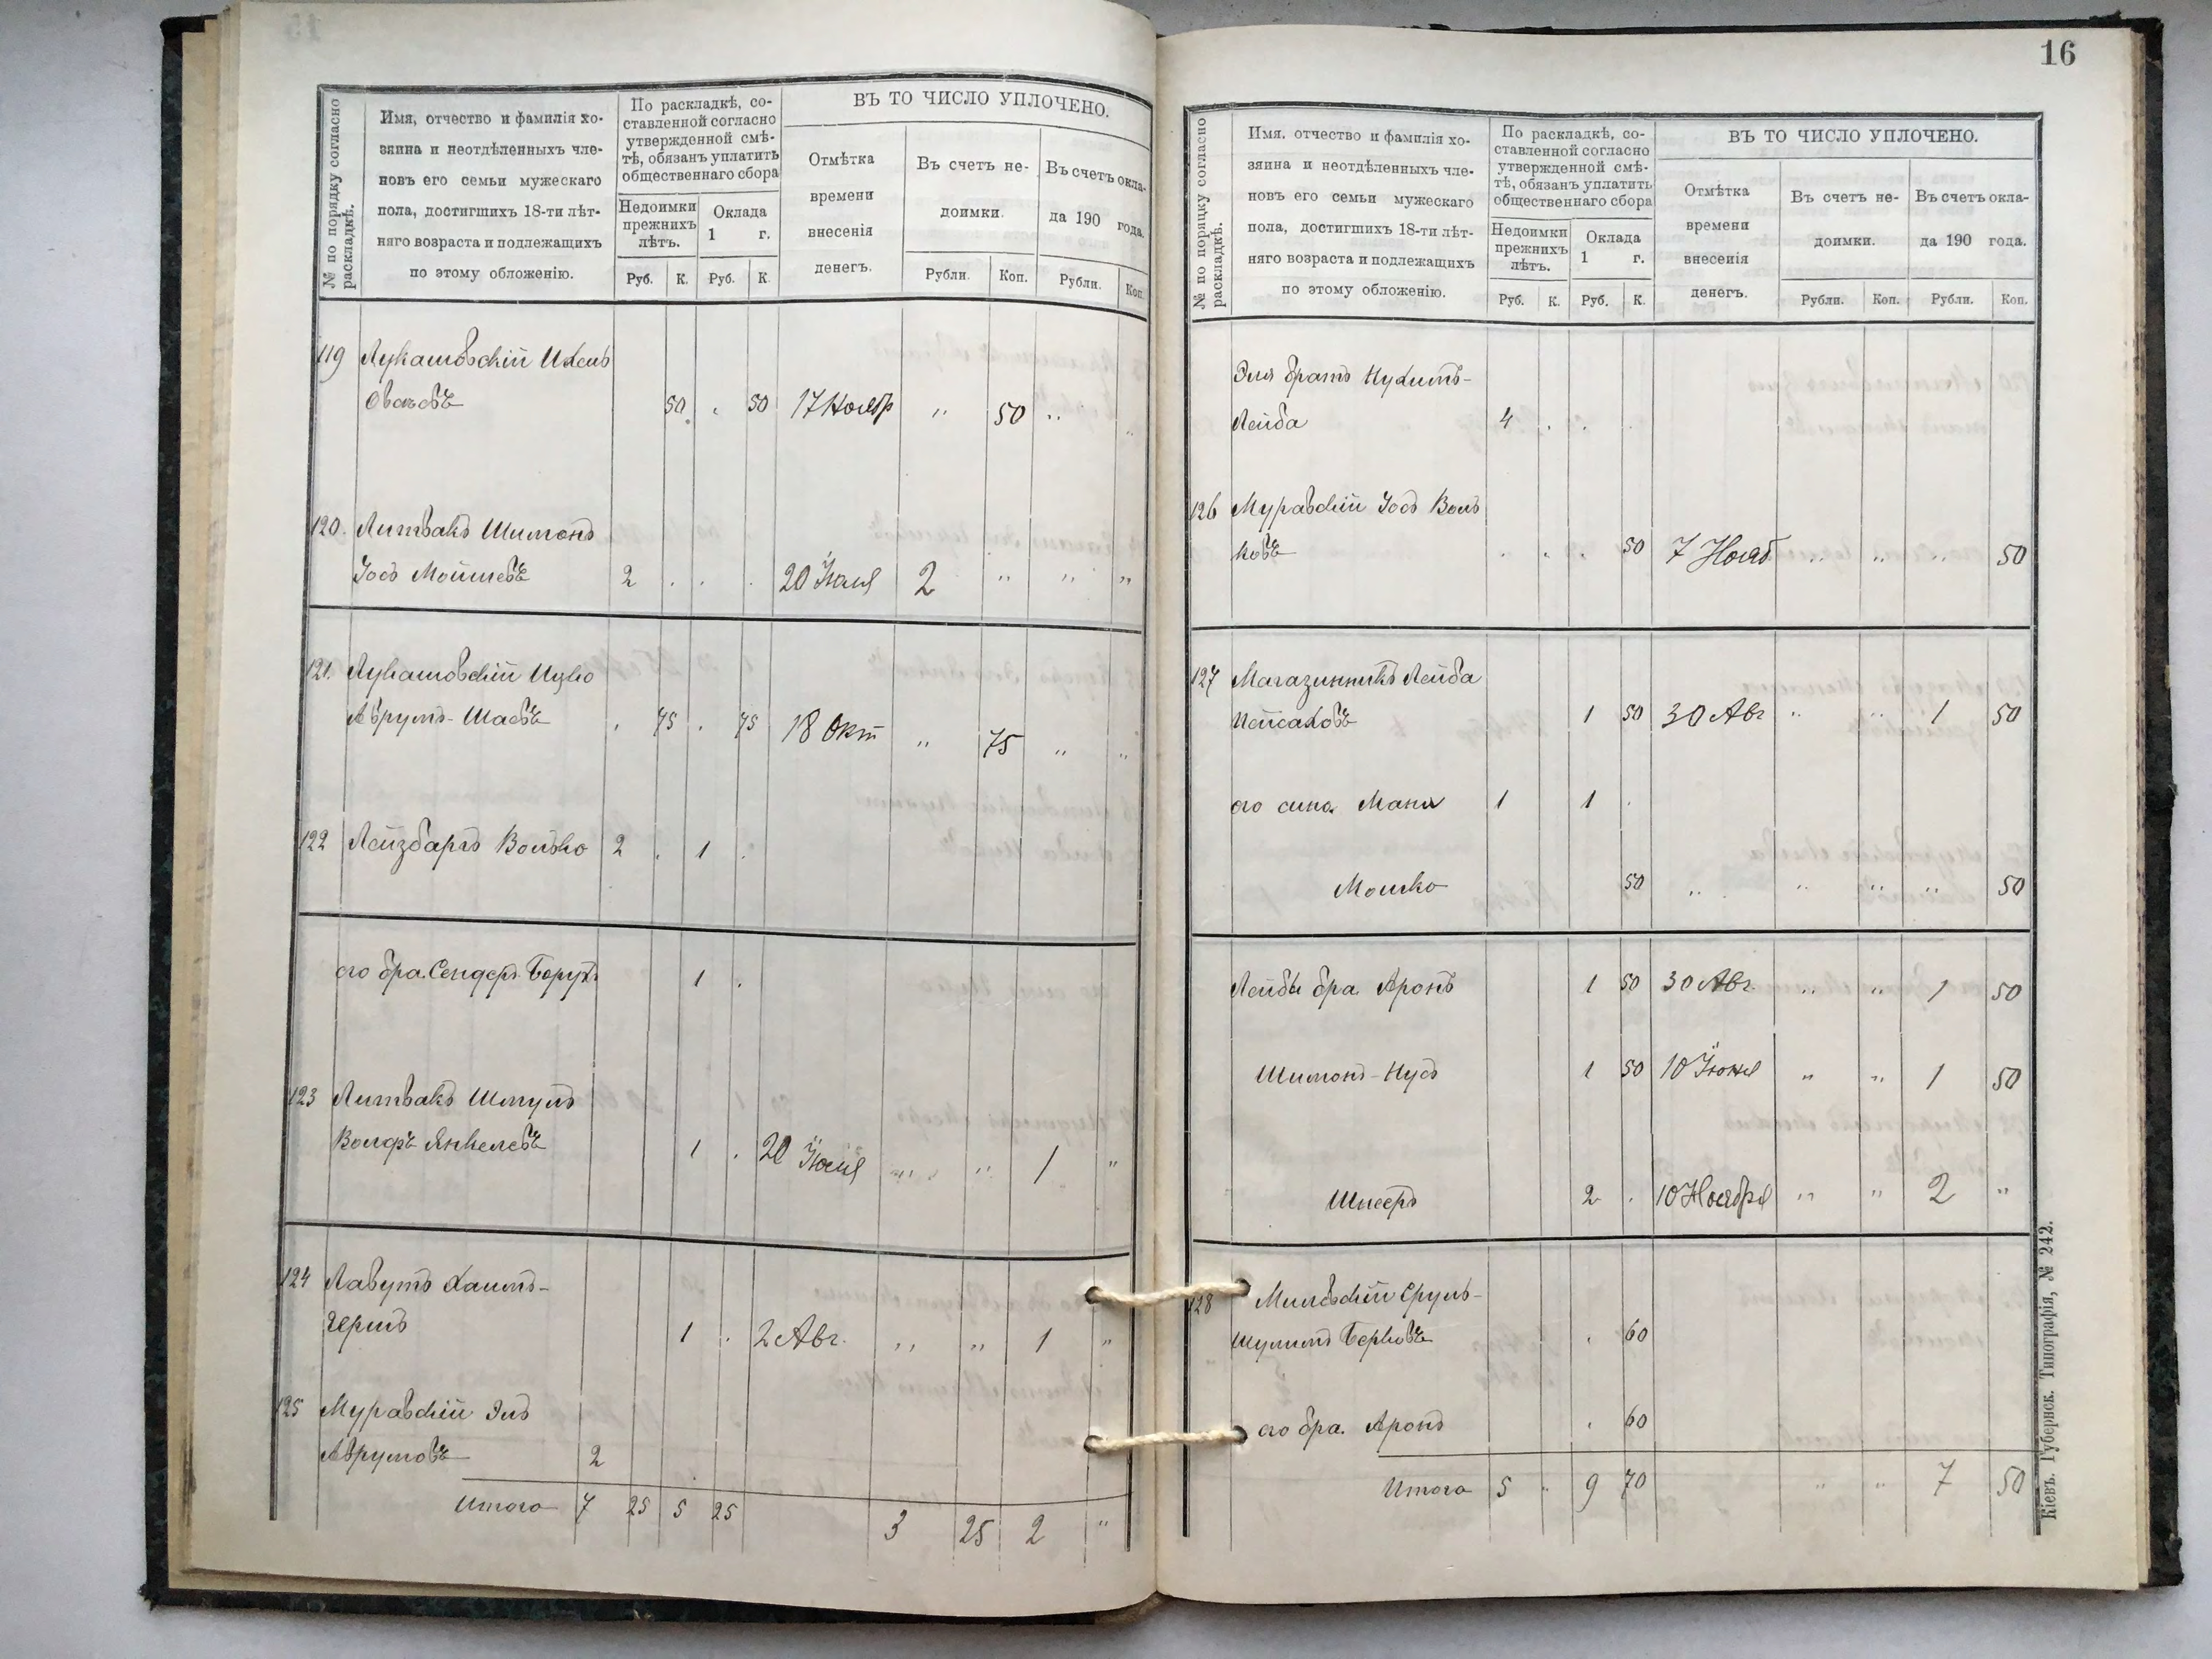 16
№ по порядку согласно раскладкѣ.
Имя, отчество и фамилія хо-
зяина и неотдѣленныхъ чле-
новъ его семьи мужескаго
пола, достигшихъ 18-ти лѣт-
няго возраста и подлежащихъ
по этому обложенію.
По раскладкѣ, со-
ставленной согласно
утвержденной смѣ-
тѣ, обязанъ уплатить
общественнаго сбора
Недоимки
прежнихъ
лѣтъ.
Оклада
1 г.
Руб. К. Руб. К.
ВЪ ТО ЧИСЛО УПЛОЧЕНО.
Отмѣтка
времени
внесенія
денегъ.
Въ счетъ не-
доимки.
Рубли. Коп.
Въ счетъ окла-
да 190 года.
Рубли. Коп.
119 Лукашовскій
50 . 50 17 Нояб " 50 " "
120. Литвакъ Шимонъ
Іосъ Мойшевъ 2 . . . 20 Іюля 2 " " "
121. Лукашовскій Ицко
Аврумъ- . 75 . 75 18 Окт " 75 " "
122 Волько 2 . 1 .
его бра. Сендеръ Борухъ 1 .
123 Литвакъ Шмулъ
Волфъ Янкелевъ 1 . 20 Іюля " " 1 "
124 Лавутъ Хаимъ-
Гершъ 1 . 2 Авг. " " 1 "
125 Муравскій Эль
Аврумовъ 2
Итого 7 25 5 25 3 25 2 "
№ по порядку согласно раскладкѣ.
Имя, отчество и фамилія хо-
зяина и неотдѣленныхъ чле-
новъ его семьи мужескаго
пола, достигшихъ 18-ти лѣт-
няго возраста и подлежащихъ
по этому обложенію.
По раскладкѣ, со-
ставленной согласно
утвержденной смѣ-
тѣ, обязанъ уплатить
общественнаго сбора
Недоимки
прежнихъ
лѣтъ.
Оклада
1 г.
Руб. К. Руб. К.
ВЪ ТО ЧИСЛО УПЛОЧЕНО.
Отмѣтка
времени
внесенія
денегъ.
Въ счетъ не-
доимки.
Рубли. Коп.
Въ счетъ окла-
да 190 года.
Рубли. Коп.
Эля братъ Нухимъ-
Лейба 4 . . .
126 Муравскій Іосъ Воль
ковъ . . . 50 7 Нояб " " " 50
127 Магазинникъ Лейба
Пейсаховъ 1 50 30 Авг " " 1 50
его сина Мани 1 1 .
Мошко 50 " " " " 50
Лейбы бра. Аронъ 1 50 30 Авг. " " 1 50
Шимонъ-Нусъ 1 50 10 Іюня " " 1 50
Шнееръ 2 . 10 Ноября " " 2 "
128 Милевскій Сруль-
Шулимъ Берковъ . 60
его бра. Аронъ . 60
Итого 5 " 9 70 " " 7 50
Кіевъ. Губернск. Типографія, № 242.